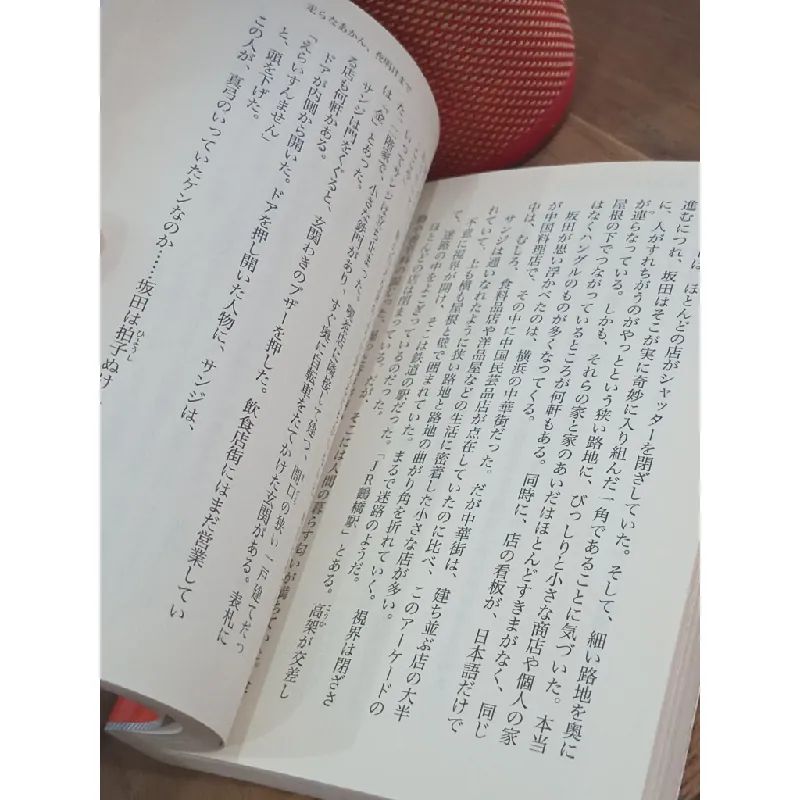 は、ほとんどの店がシャッターを閉ざしていた。そして、細い路地を奥に
進むにつれ、坂田はそこが実に奇妙に入り組んだ一角であることに気づいた。本当
に、人がすれちがうのがやっとという狭い路地に、びっしりと小さな商店や個人の家
が連らなっている。しかも、それらの家と家のあいだはほとんどすきまがなく、同じ
屋根の下でつながっているところが何軒もある。同時に、店の看板が、日本語だけで
はなくハングルのものが多くなってくる。
坂田が思い浮かべたのは、横浜の中華街だった。だが中華街は、建ち並ぶ店の大半
が中国料理店で、その中に中国民芸品店が点在していたのに比べ、このアーケードの
中は、むしろ、食料品店や洋品屋などの生活に密着した小さな店が多い。
サンジは通いなれたように狭い路地と路地の曲がり角を折れていく。視界は閉ざさ
れていて、上も横も屋根と壁で囲まれていた。まるで迷路のようだ。
不意に視界が開け、そこは鉄道の駅だった。「JR鶴橋駅」とある。高架が交差し
て、迷路の中をよこぎっているのだった。
ほとんどの店は閉まっている
そこには人間の暮らす匂いが満ちていた。
走らなあかん、夜明けまで
喫茶店に隣接して建つ、間口の狭い一戸建てだっ
た。二階家で、小さな鉄門があり、すぐ奥に自転車をたてかけた玄関がある。表札に
は「金」とあった。
サンジは門をくぐると、玄関わきのブザーを押した。飲食店街にはまだ営業してい
る店も何軒かある。
ドアが内側から開いた。ドアを押し開いた人物に、サンジは、
「えらいすんません」
と、頭を下げた。
この人が、真弓のいっていたケンなのか……坂田は拍子ぬけ